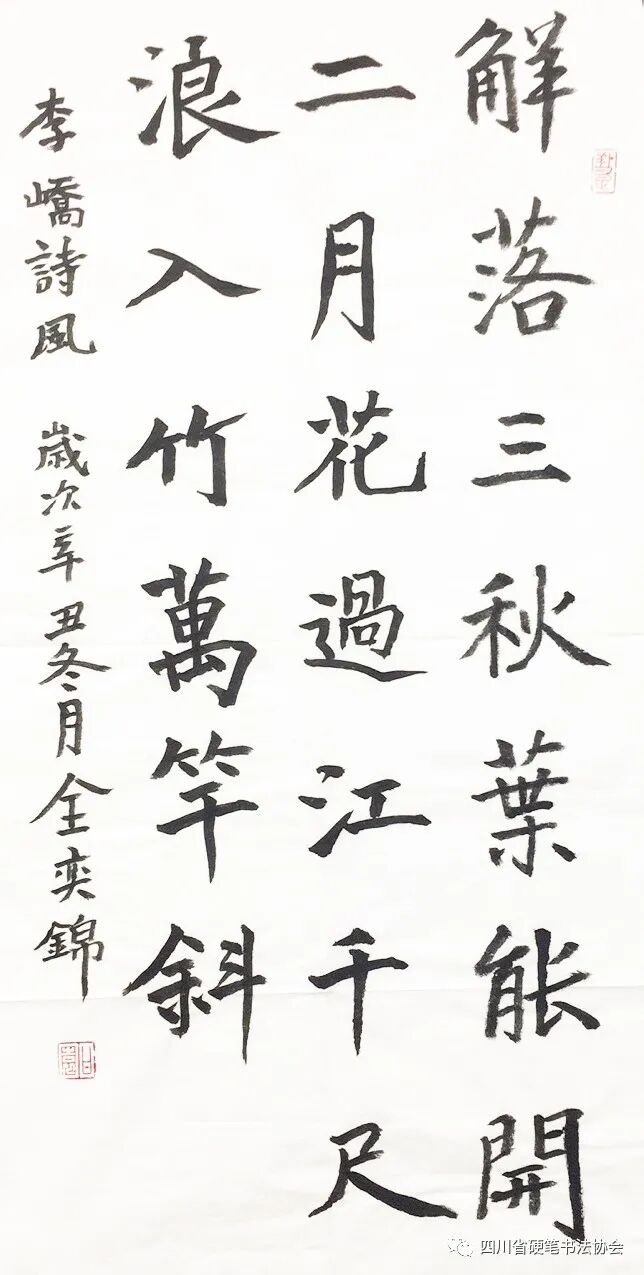 解落三秋葉能開
二月花過江千尺
浪入竹萬竿斜
李嶠詩風 歲次辛丑冬月全奕錦
四川省硬笔书法协会